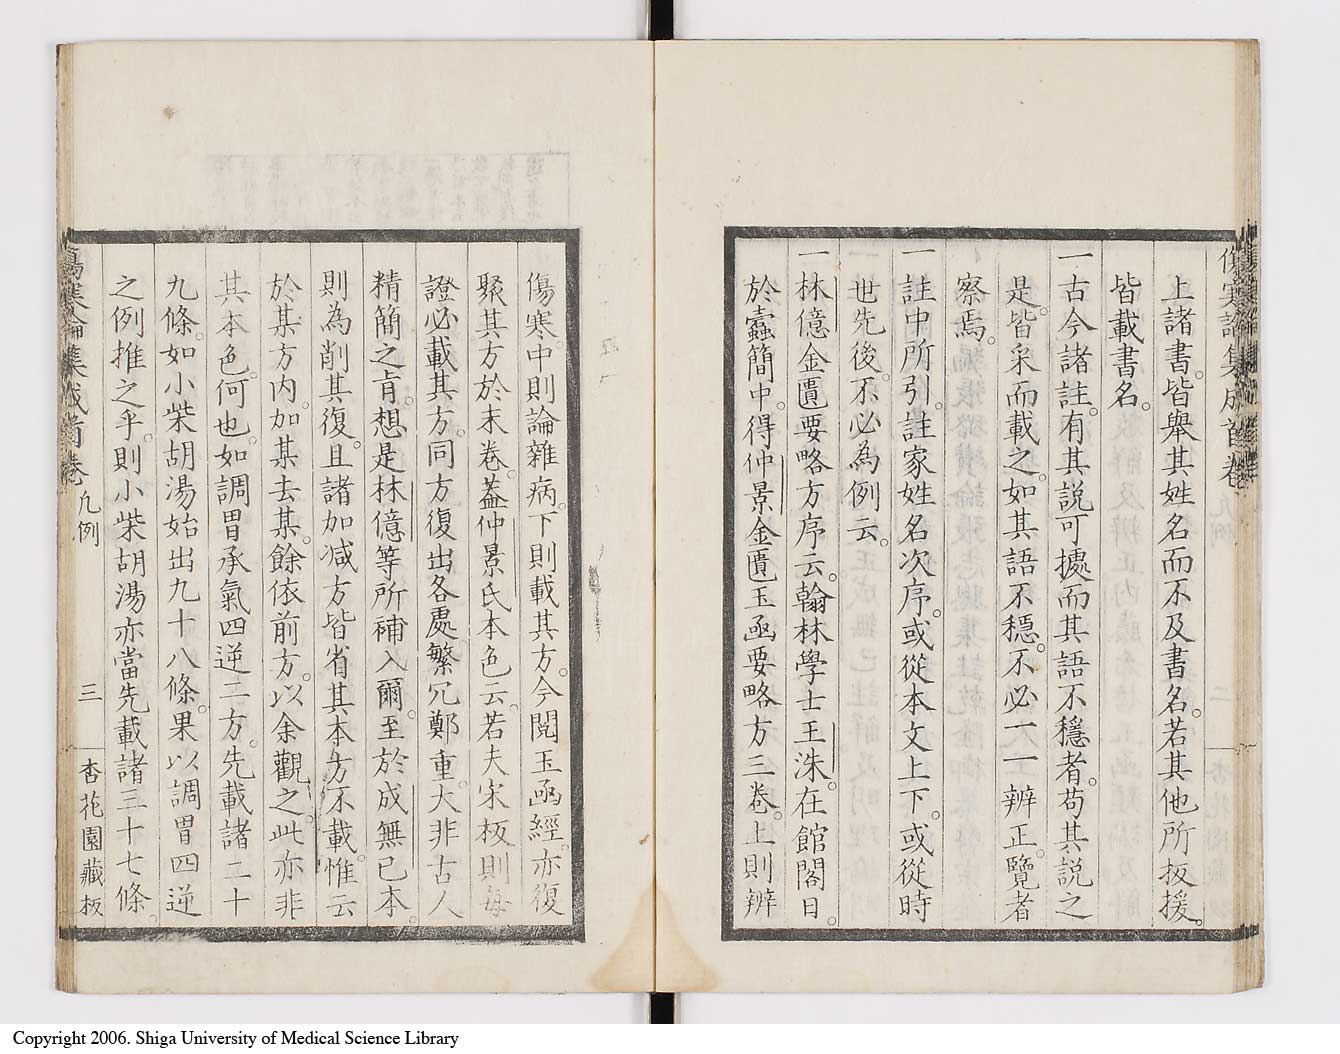 上諸書。皆舉其姓名而不及書名。若其他所扳援。
皆載書名。
一古今諸註。有其說可據而其語不穩者。苟其說之
是。皆采而載之。如其語不穩。不必一一辨正。覽者
察焉。
一註中所引。註家姓名次序。或從本文上下。或從時
世先後。不必為例云。
一林億金匱要略方序云。翰林學士王洙。在館閣日。
於蠹簡中。得仲景金匱玉函要略方三卷。上則辨
傷寒。中則論雜病。下則載其方。今閱玉函經。亦復
聚其方於末卷。蓋仲景氏本色云。若夫宋板則每
證必載其方。同方復出各處。繁冗鄭重。大非古人
精簡之旨。想是林億等所補入爾。至於成無已本。
則為削其復。且諸加減方皆省其本方不載。惟云
於某方內。加某去某。餘依前方。以余觀之。此亦非
其本色。何也。如調胃承氣四逆二方。先載諸二十
九條。如小柴胡湯始出九十八條。果以調胃四逆
之例推之乎。則小柴胡湯亦當先載諸三十七條。
傷寒論集成首卷 凡例 三 杏花園藏板